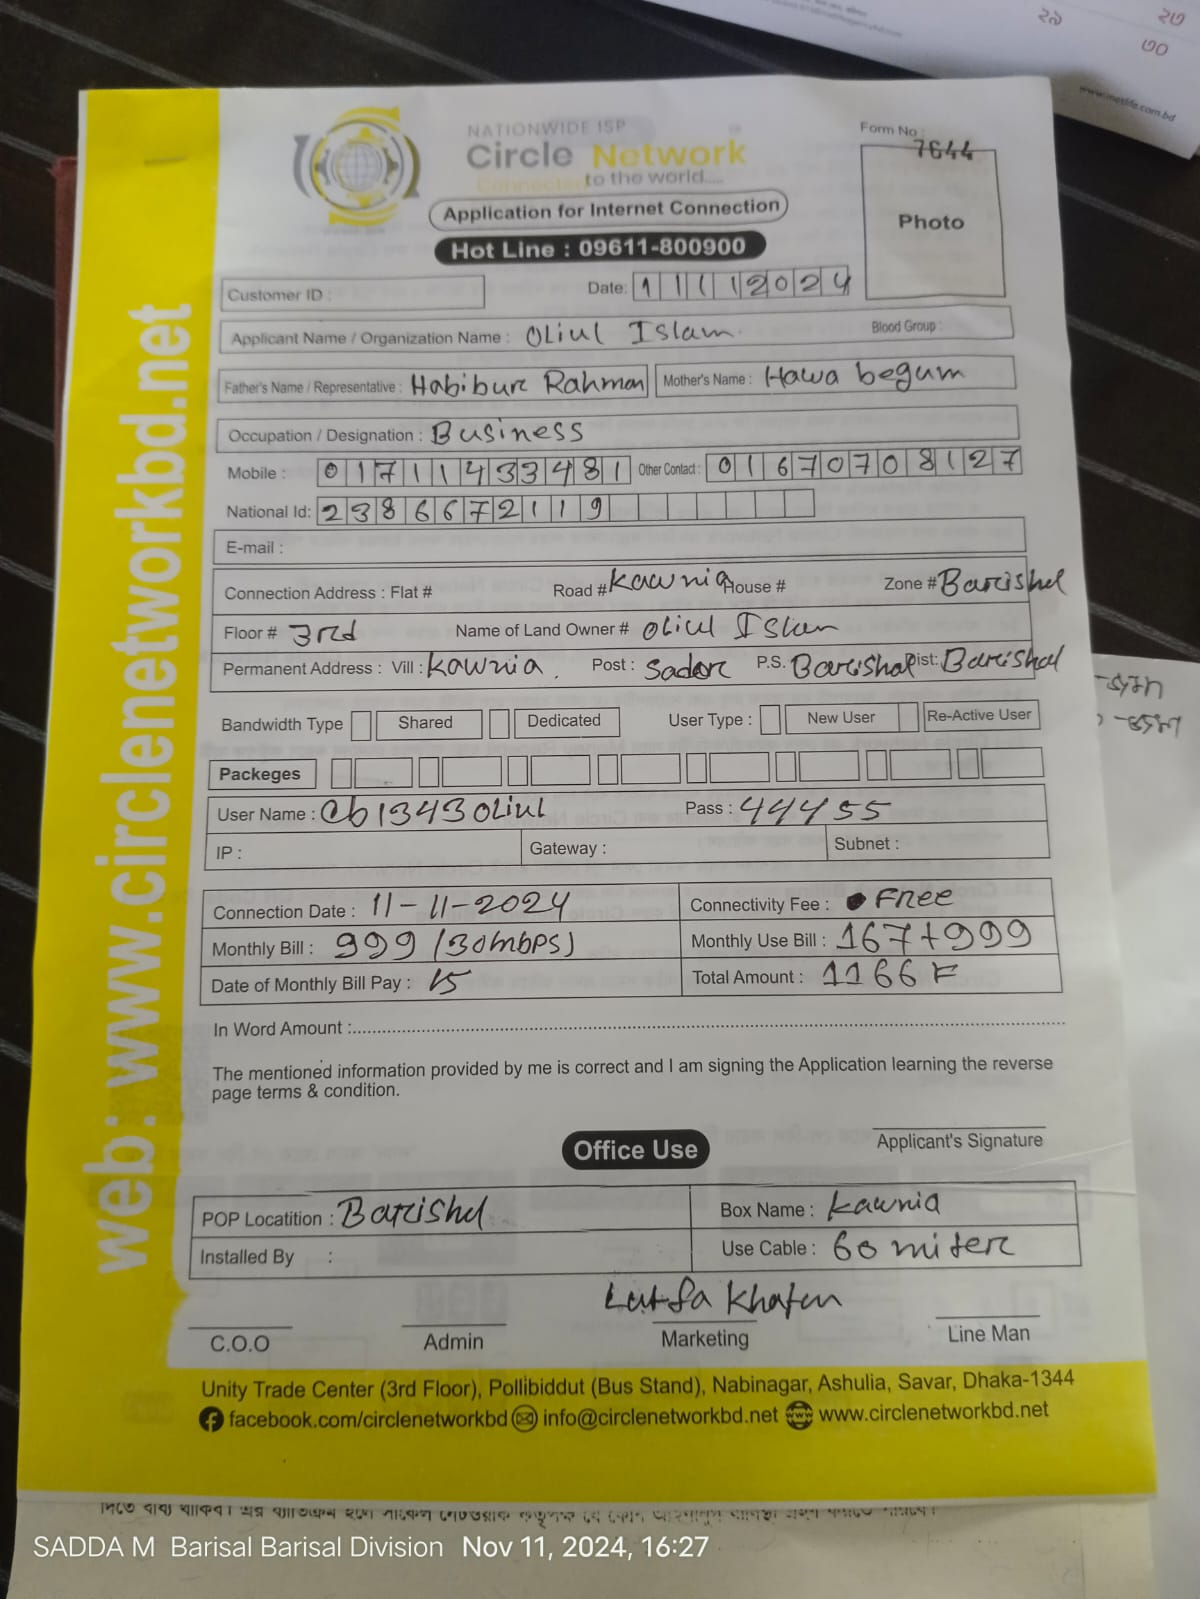 ২৯ ২৩
৩০
www.metlife.com.bd
NATIONWIDE ISP
Circle Network
Connected to the world....
Form No : 7644
Photo
Application for Internet Connection
Hot Line : 09611-800900
Customer ID :
Date: 11112024
Applicant Name / Organization Name : Oliul Islam
Blood Group :
Father's Name / Representative : Habibur Rahman
Mother's Name : Hawa begum
Occupation / Designation : Business
Mobile : 01711433481
Other Contact : 01670708127
National Id: 2386672119
E-mail :
Connection Address : Flat # Road # Kawnia House # Zone # Barishal
Floor # 3rd Name of Land Owner # Oliul Islam
Permanent Address : Vill : Kawnia. Post : Sador P.S. Barishal Dist: Barishal
Bandwidth Type Shared Dedicated User Type : New User Re-Active User
Packeges
User Name : @b13430liul Pass : 44455
IP : Gateway : Subnet :
Connection Date : 11-11-2024 Connectivity Fee : Free
Monthly Bill : 999 (30mbps) Monthly Use Bill : 167+999
Date of Monthly Bill Pay : 15 Total Amount : 1166
In Word Amount :
The mentioned information provided by me is correct and I am signing the Application learning the reverse
page terms & condition.
Applicant's Signature
Office Use
POP Locatition : Barishal Box Name : Kawnia
Installed By : Use Cable : 60 miter
Lutfa Khatun
C.O.O Admin Marketing Line Man
Unity Trade Center (3rd Floor), Pollibiddut (Bus Stand), Nabinagar, Ashulia, Savar, Dhaka-1344
facebook.com/circlenetworkbd info@circlenetworkbd.net www.circlenetworkbd.net
web: www.circlenetworkbd.net
SADDA M Barisal Barisal Division Nov 11, 2024, 16:27